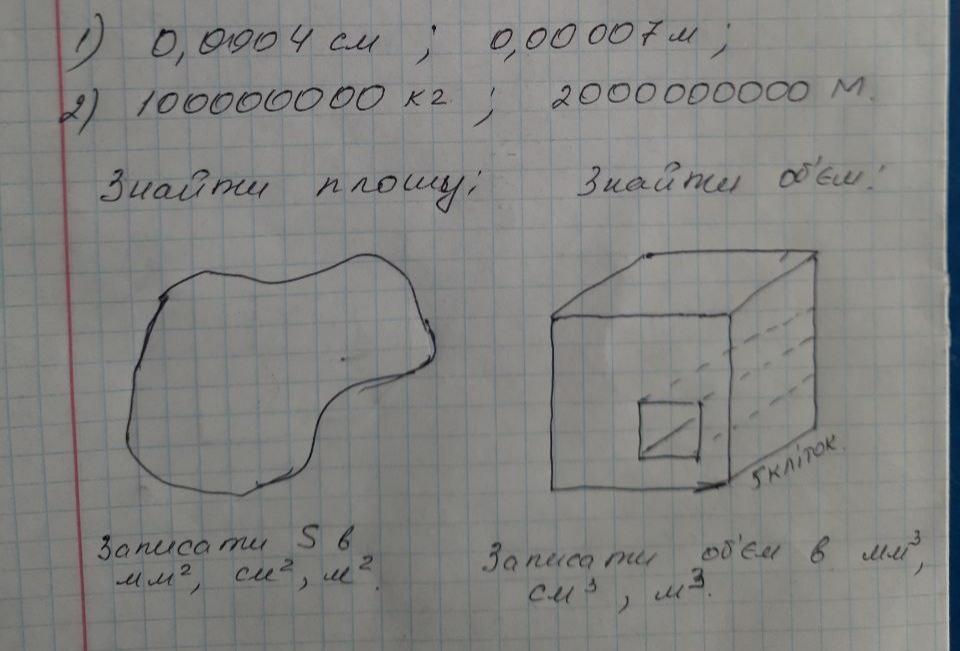 1) 0,0904 см ; 0,00007 м ;
2) 100000000 кг ; 2000000000 м.
Знайти площу; Знайти об'єм:
5 кліток.
Записати S в
мм², см², м².
Записати об'єм в мм³,
см³, м³.